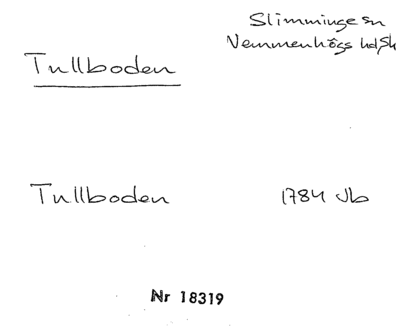 Slimminge sn
Vemmenhögs hd, Sk
Tullboden
Tullboden 1784 Jb
Nr 18319